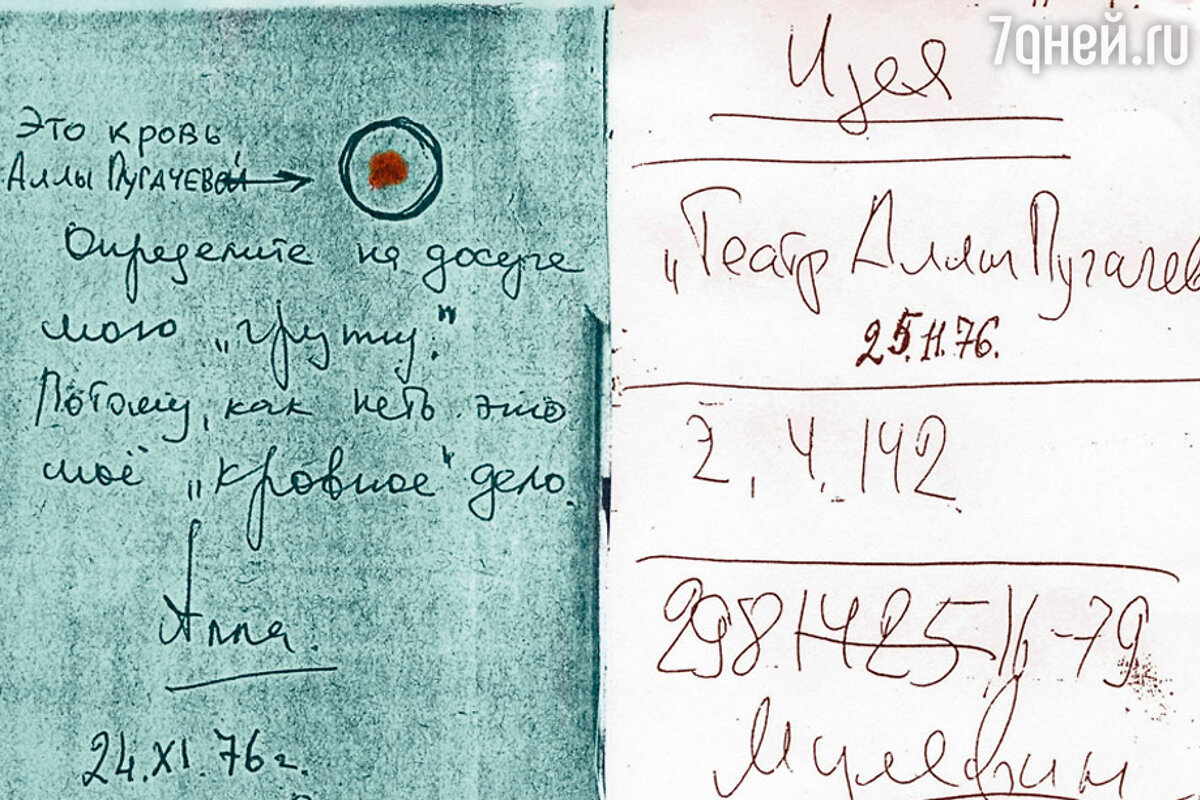 Это кровь
Аллы Пугачевой
Определите на досуге
мою „группу."
Потому, как неть это
моё „кровное" дело.
Алла.
24.XI.76г.
7дней.ru
Идея
„Театр Аллы Пугачев
25.11.76.
2, 4, 142
298 1425 16-79
Мулявин